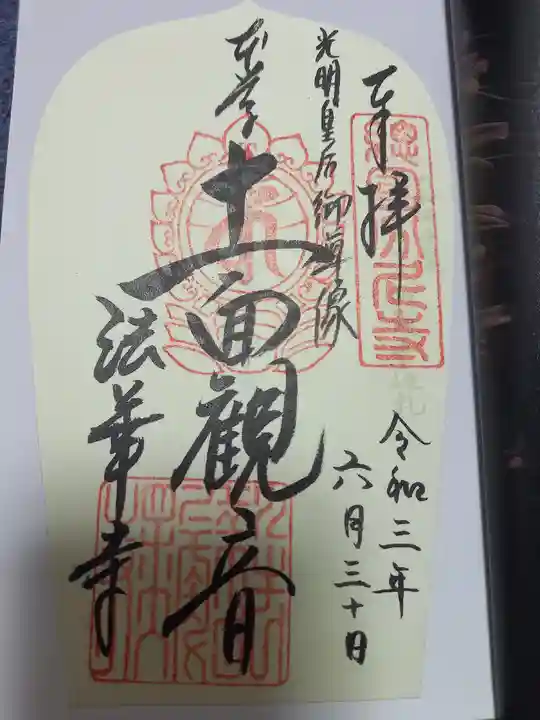 奉拝
令和三年
六月三十日
光明皇后御尊像
本尊
十一面観音
法華寺